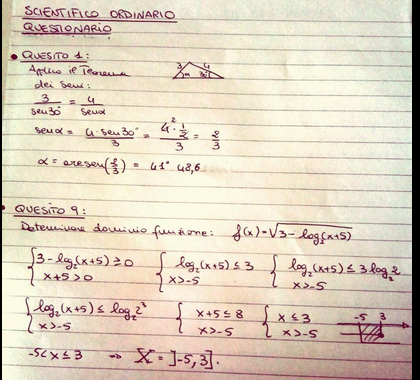 SCIENTIFICO ORDINARIO
QUESTIONARIO
• QUESITO 1:
Applico il Teorema
dei seni:
3 4 α 30°
3/sen30° = 4/senα
senα = 4·sen30°/3 = 4²·1/2/3 = 2/3
α = arcsen(2/3) = 41° 48,6
• QUESITO 9:
Determinare dominio funzione: f(x)=√3-log₂(x+5)
{3-log₂(x+5)≥0 {log₂(x+5)≤3 {log₂(x+5)≤3log₂2
x+5>0 x>-5 x>-5
{log₂(x+5)≤log₂2³ {x+5≤8 {x≤3 -5 3
x>-5 x>-5 x>-5
-5<x≤3 ⇒ X=]-5,3].